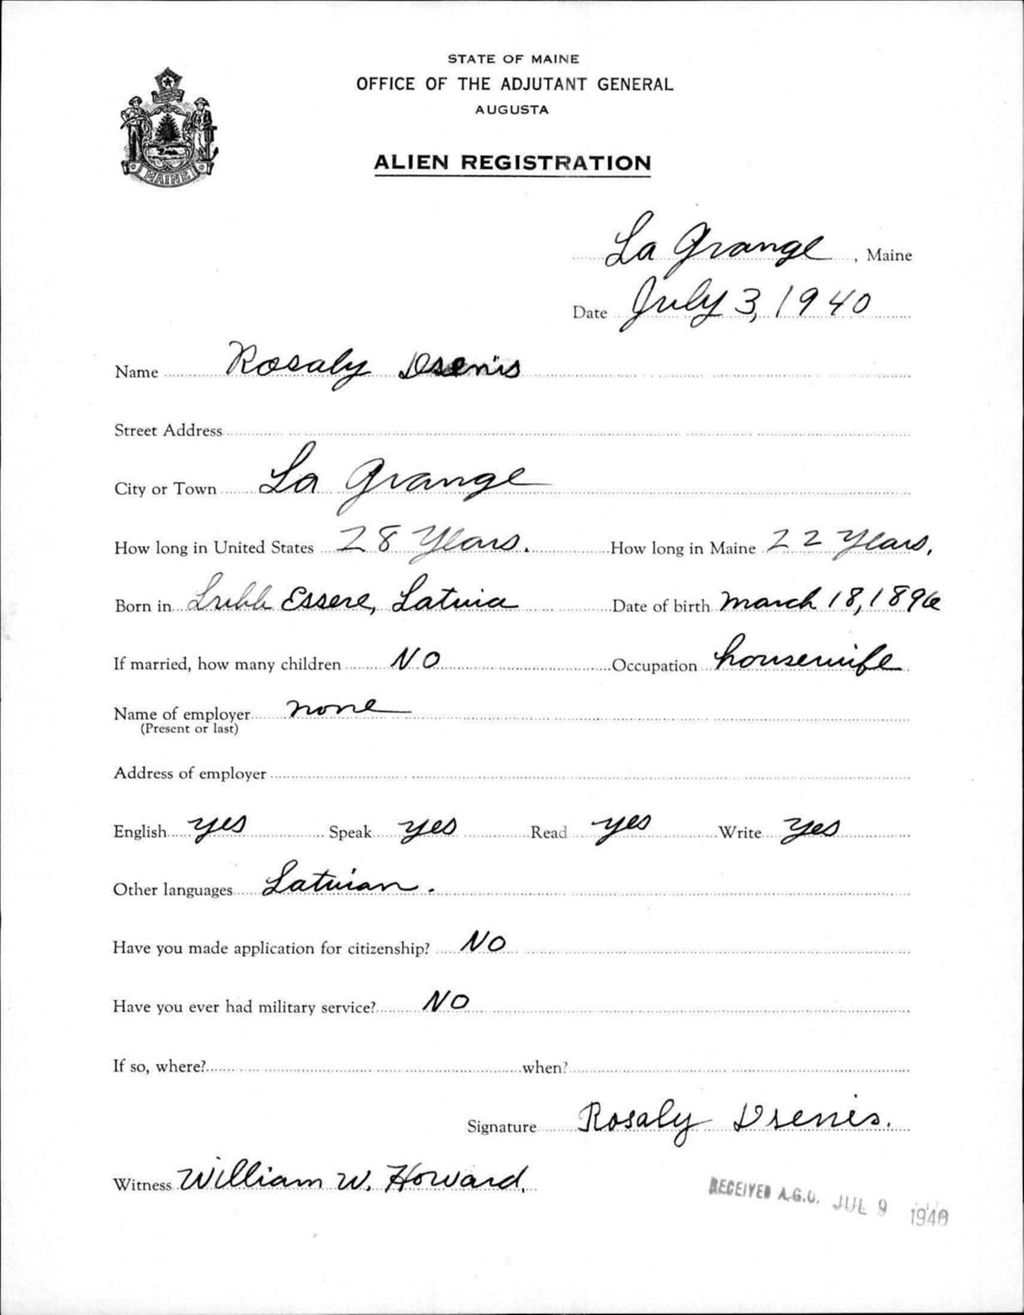 STATE OF MAINE
OFFICE OF THE ADJUTANT GENERAL
AUGUSTA
MAINE
ALIEN REGISTRATION
La Grange, Maine
Date July 3, 1940
Name Rosaly Dsenis
Street Address
City or Town La Grange
How long in United States 28 Years. How long in Maine 22 Years,
Born in Essere, Latvia Date of birth March 18, 1896
If married, how many children NO Occupation housewife
Name of employer none
(Present or last)
Address of employer
English yes Speak yes Read yes Write yes
Other languages Latvian.
Have you made application for citizenship? NO
Have you ever had military service? NO
If so, where? when?
Signature Rosaly Dsenis.
Witness William W. Howard.
RECEIVED A.G.O. JUL 9 1940